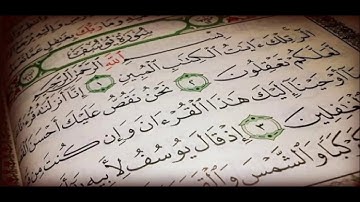 وَمَا رَبُّكَ بِغَٰفِلٍ
سُورَةُ يُوسُفَ
بِسْمِ اللَّهِ الرَّحْمَٰنِ
الٓر تِلْكَ ءَايَٰتُ ٱلْكِتَٰبِ ٱلْمُبِينِ ١ إِنَّآ أَنزَلْنَٰهُ
لَّعَلَّكُمْ تَعْقِلُونَ ٢ نَحْنُ نَقُصُّ عَلَيْكَ أَحْسَنَ
أَوْحَيْنَآ إِلَيْكَ هَٰذَا ٱلْقُرْءَانَ وَإِن كُنتَ مِن
ٱلْغَٰفِلِينَ ٣ إِذْ قَالَ يُوسُفُ لِأَبِيهِ
كَوْكَبًا وَٱلشَّمْسَ وَٱلْقَمَرَ